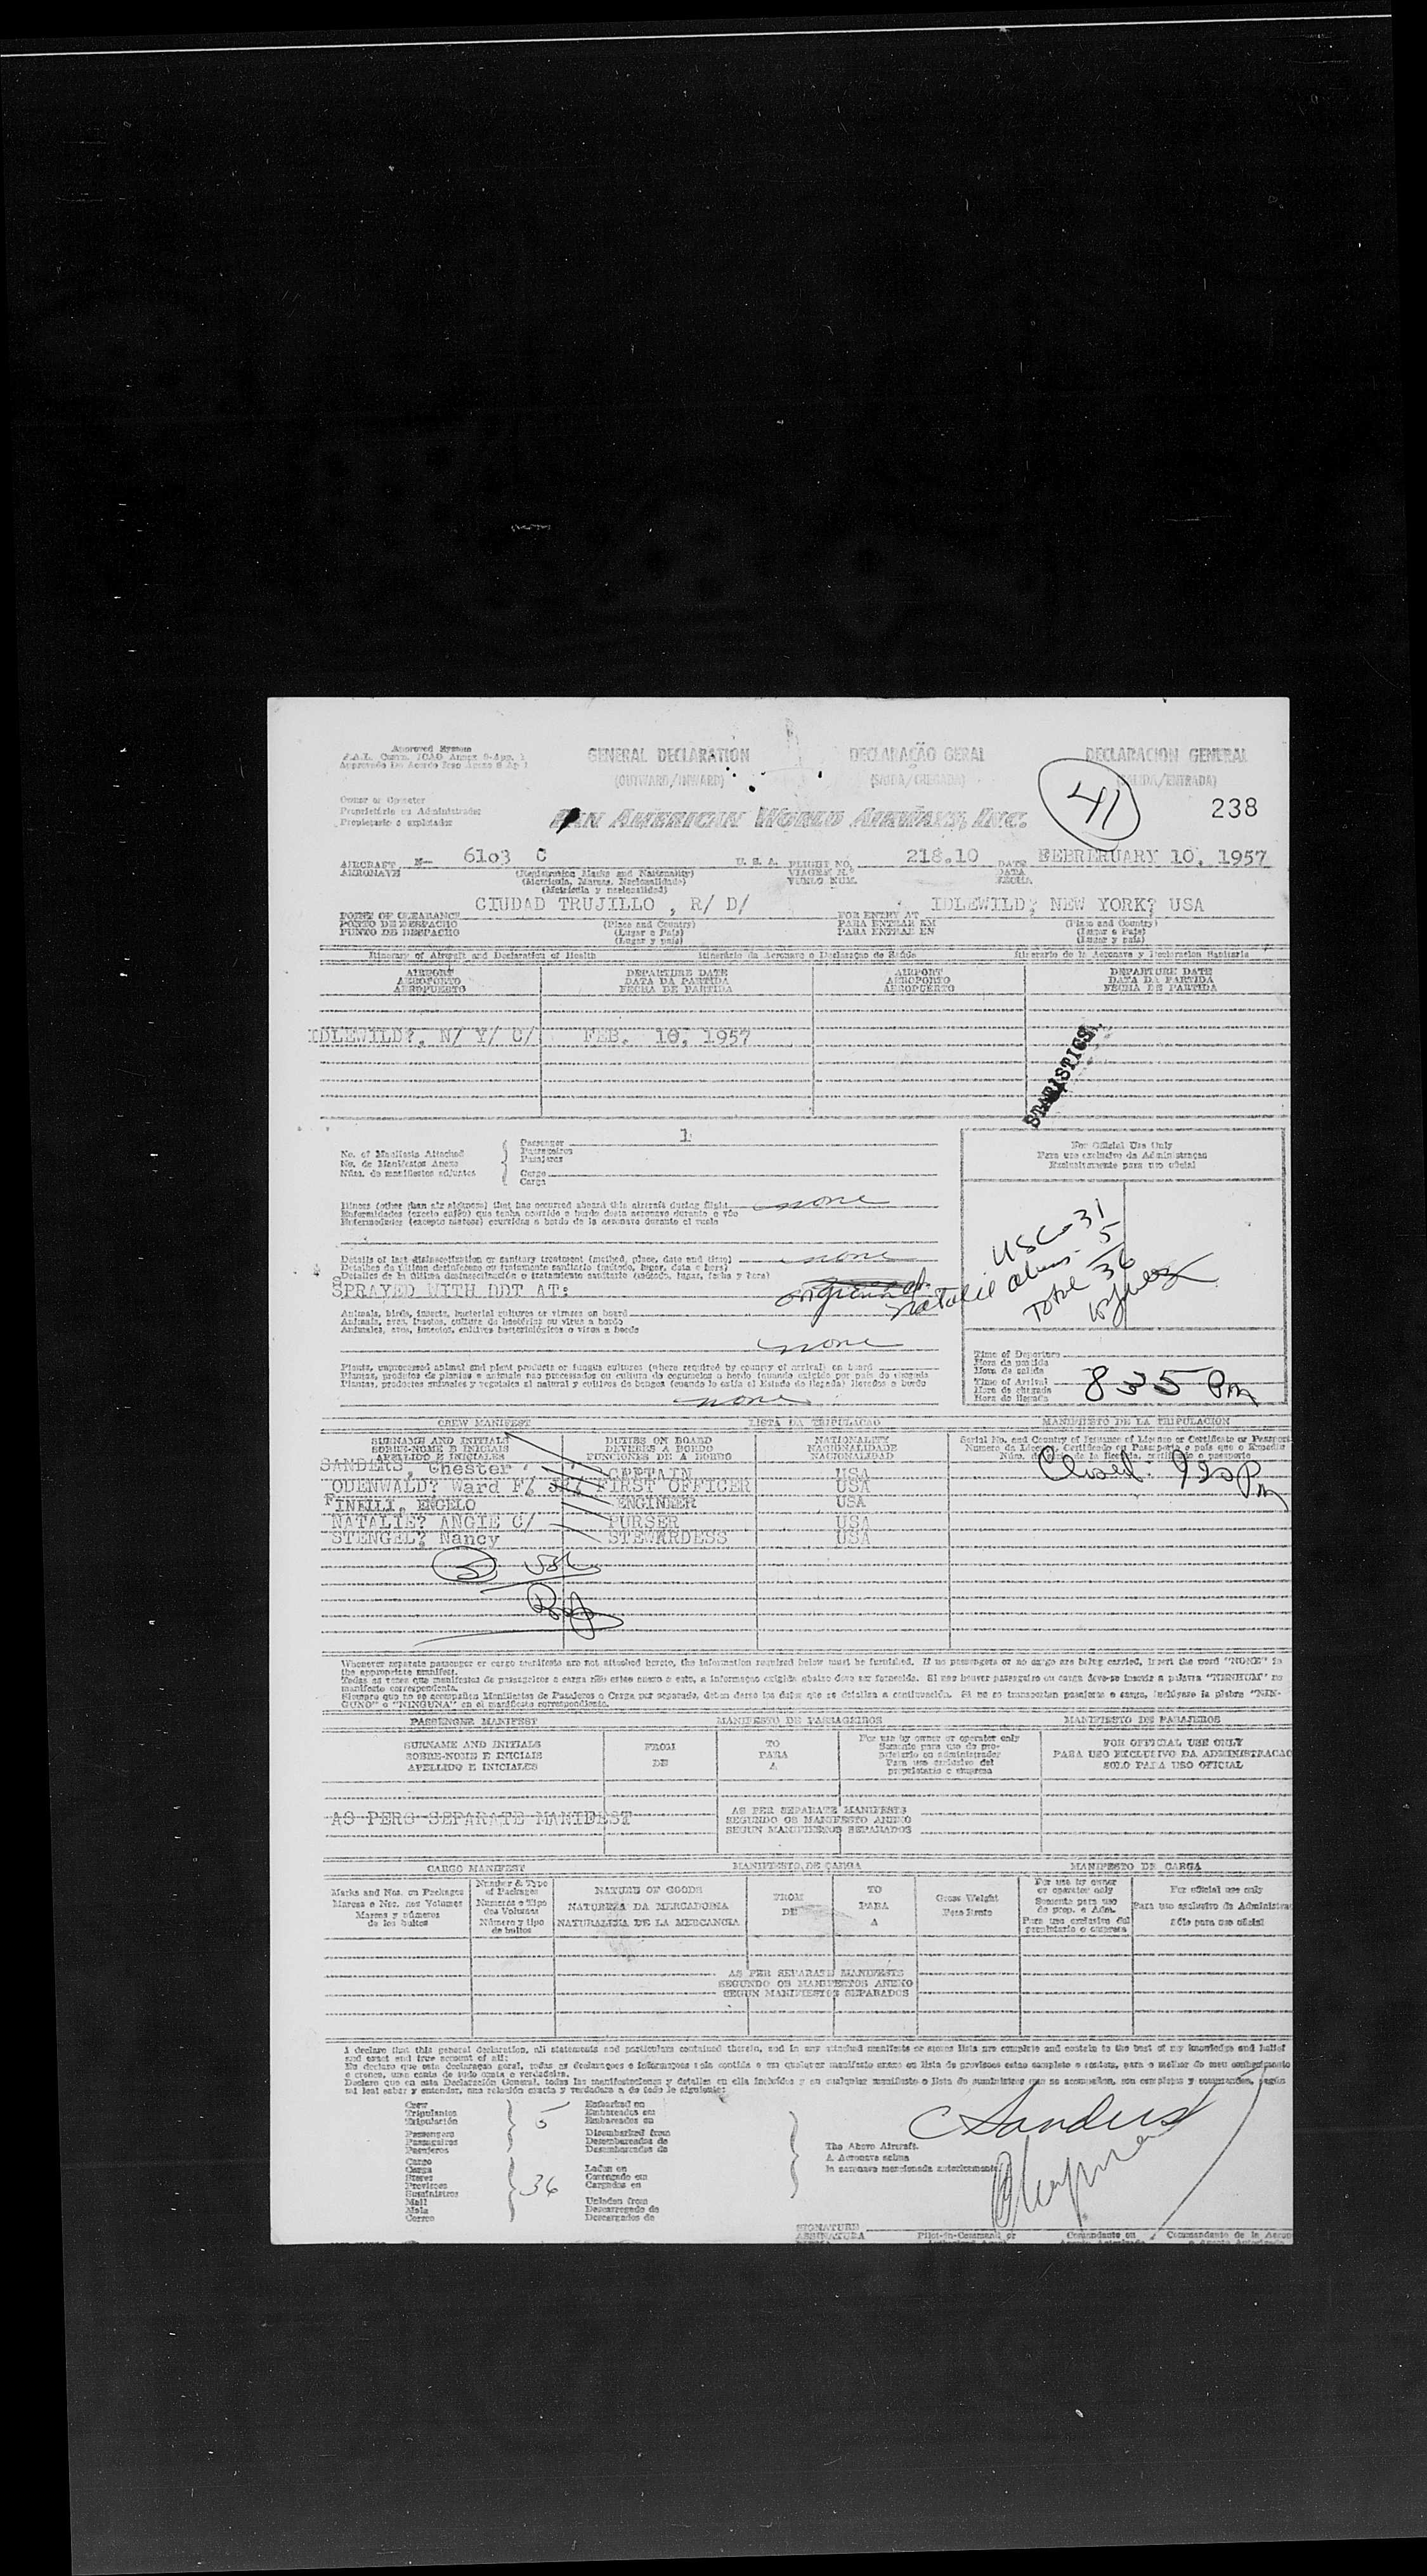 Approved System
GENERAL DECLARATION DECLARAÇÃO GERAL DECLARACION GENERAL
(OUTWARD/INWARD) (SAIDA/CHEGADA) (SALIDA/ENTRADA)
Owner or Operator
Proprietário ou Administrador
Propietario o explotador
PAN AMERICAN WORLD AIRWAYS, INC.
41
238
AIRCRAFT N- 6103 C U. S. A. FLIGHT NO. 218.10 DATE FEBRERUARY 10, 1957
AERONAVE (Registration Marks and Nationality) VIAGEM N.º DATA
(Matricula, Marcas, Nacionalidade) VUELO NUM. FECHA
(Matrícula y nacionalidad)
POINT OF CLEARANCE CIUDAD TRUJILLO , R/ D/ FOR ENTRY AT IDLEWILD? NEW YORK? USA
PONTO DE DESPACHO (Place and Country) PARA ENTRAR EM (Place and Country)
PUNTO DE DESPACHO (Lugar e País) PARA ENTRAR EN (Lugar e País)
(Lugar y país) (Lugar y país)
Itinerary of Aircraft and Declaration of Health Itinerário da Aeronave e Declaração de Saúde Itinerario de la Aeronave y Declaracion Sanitaria
AIRPORT DEPARTURE DATE AIRPORT DEPARTURE DATE
AEROPORTO DATA DA PARTIDA AEROPORTO DATA DA PARTIDA
AEROPUERTO FECHA DE PARTIDA AEROPUERTO FECHA DE PARTIDA
IDLEWILD?, N/ Y/ C/ FEB. 10, 1957
STATISTICS
No. of Manifests Attached Passenger 1
No. de Manifestos Anexo Passageiros
Núm. de manifiestos adjuntos Pasajeros
Cargo
Carga
For Official Use Only
Para uso exclusivo da Administraçao
Exclusivamente para uso oficial
Illness (other than air sickness) that has occurred aboard this aircraft during flight none
Enfermidades (exceto enjôo) que tenha ocorrido a bordo desta aeronave durante o vôo
Enfermedades (excepto mareos) ocurridas a bordo de la aeronave durante el vuelo
Details of last disinsectization or sanitary treatment (method, place, date and time) none
Detalhes da última desinfeccao ou tratamento sanitario (método, lugar, data e hora)
Detalles de la última desinsectización o tratamiento sanitario (método, lugar, fecha y hora)
SPRAYED WITH DDT AT:
USC-31
5
Total 36
Animals, birds, insects, bacterial cultures or viruses on board
Animais, aves, insetos, cultura de bactérias ou virus a bordo
Animales, aves, insectos, cultivos bacteriológicos o virus a bordo
none
Plants, unprocessed animal and plant products or fungus cultures (where required by country of arrival) on board
Plantas, produtos de plantas e animais nao processados ou cultura de cogumelos a bordo (quando exigido por país de chegada
Plantas, productos animales y vegetales al natural y cultivos de hongos (cuando lo exija el Estado de llegada) llevados a bordo
none
Time of Departure
Hora da partida
Hora de salida
Time of Arrival 8 35 Pm
Hora de chegada
Hora de llegada
CREW MANIFEST LISTA DA TRIPULACAO MANIFIESTO DE LA TRIPULACION
SURNAME AND INITIALS DUTIES ON BOARD NATIONALITY Serial No. and Country of Issuance of License or Certificate or Passport
SOBRE-NOME E INICIAIS DEVERES A BORDO NACIONALIDADE
APELLIDO E INICIALES FUNCIONES DE A BORDO NACIONALIDAD
SANDERS, Chester CAPTAIN USA Closed. 920 Pm
ODENWALD? Ward F/ JR/ FIRST OFFICER USA
FINELLI, ENGELO ENGINEER USA
NATALIE? ANGIE C/ PURSER USA
STENGEL? Nancy STEWARDESS USA
5
Whenever separate passenger or cargo manifests are not attached hereto, the information required below must be furnished. If no passengers or no cargo are being carried, insert the word "NONE" in
the appropriate manifest.
Todas as vezes que manifestos de passageiros a carga não estee anexo a esto, a informaçao exigida abaixo deve ser fornecida. Si nao houver passageiro ou carga deve-se inserir a palavra "NENHUM" no
manifesto correspondente.
Siempre que no se acompañen Manifiestos de Pasajeros o Carga por separado, deben darse los datos que se detallan a continuación. Si no se transportan pasajeros o cargo, inclúyase la plabra "NIN-
GUNO" o "NINGUNA" en el manifiesto correspondiente.
PASSENGER MANIFEST MANIFESTO DE PASSAGEIROS MANIFIESTO DE PASAJEROS
SURNAME AND INITIALS FROM TO For use by owner or operator only FOR OFFICIAL USE ONLY
SOBRE-NOME E INICIAIS DE PARA Somente para uso do pro- PARA USO EXCLUSIVO DA ADMINISTRACAO
APELLIDO E INICIALES A prietario ou administrador SOLO PARA USO OFICIAL
Para uso exclusivo del
propietario o empresa
AS PERS SEPARATE MANIFEST AS PER SEPARATE MANIFESTS
SEGUNDO OS MANIFESTO ANEXO
SEGUN MANIFIESTOS SEPARADOS
CARGO MANIFEST MANIFESTO DE CARGA MANIFIESTO DE CARGA
Marks and Nos. on Packages Number & Type of Packages NATURE OF GOODS FROM TO Gross Weight For use by owner or operator only For official use only
Marcas e Nos. nos Volumes Numeros e Tipo dos Volumes NATUREZA DA MERCADORIA DE PARA Peso Bruto Somente para uso do prop. e Adm. Para uso exclusivo da Administracao
Marcas y números de los bultos Número y tipo de bultos NATURALEZA DE LA MERCANCIA A Para uso exclusivo del propietario o empresa Sólo para uso oficial
AS PER SEPARATE MANIFESTS
SEGUNDO OS MANIFESTOS ANEXO
SEGUN MANIFIESTOS SEPARADOS
I declare that this general declaration, all statements and particulars contained therein, and in any attached manifests or stores lists are complete and contain to the best of my knowledge and belief
and exact and true account of all:
Crew 5 Embarked on
Tripulantes Embarcados em
Tripulación Embarcados en
Passengers Disembarked from
Passageiros Desembarcados de
Pasajeros Desembarcados de
Cargo
Carga Laden on
Stores 36 Carregado em
Provisoes Cargados en
Suministros
Mail Unladen from
Mala Descarregado de
Correo Descargados de
The Above Aircraft.
A Aeronave acima
la aeronave mencionada anteriormente
C Sanders
SIGNATURE
ASSINATURA Pilot-in-Command or Comandante ou Comandante de la Aeron